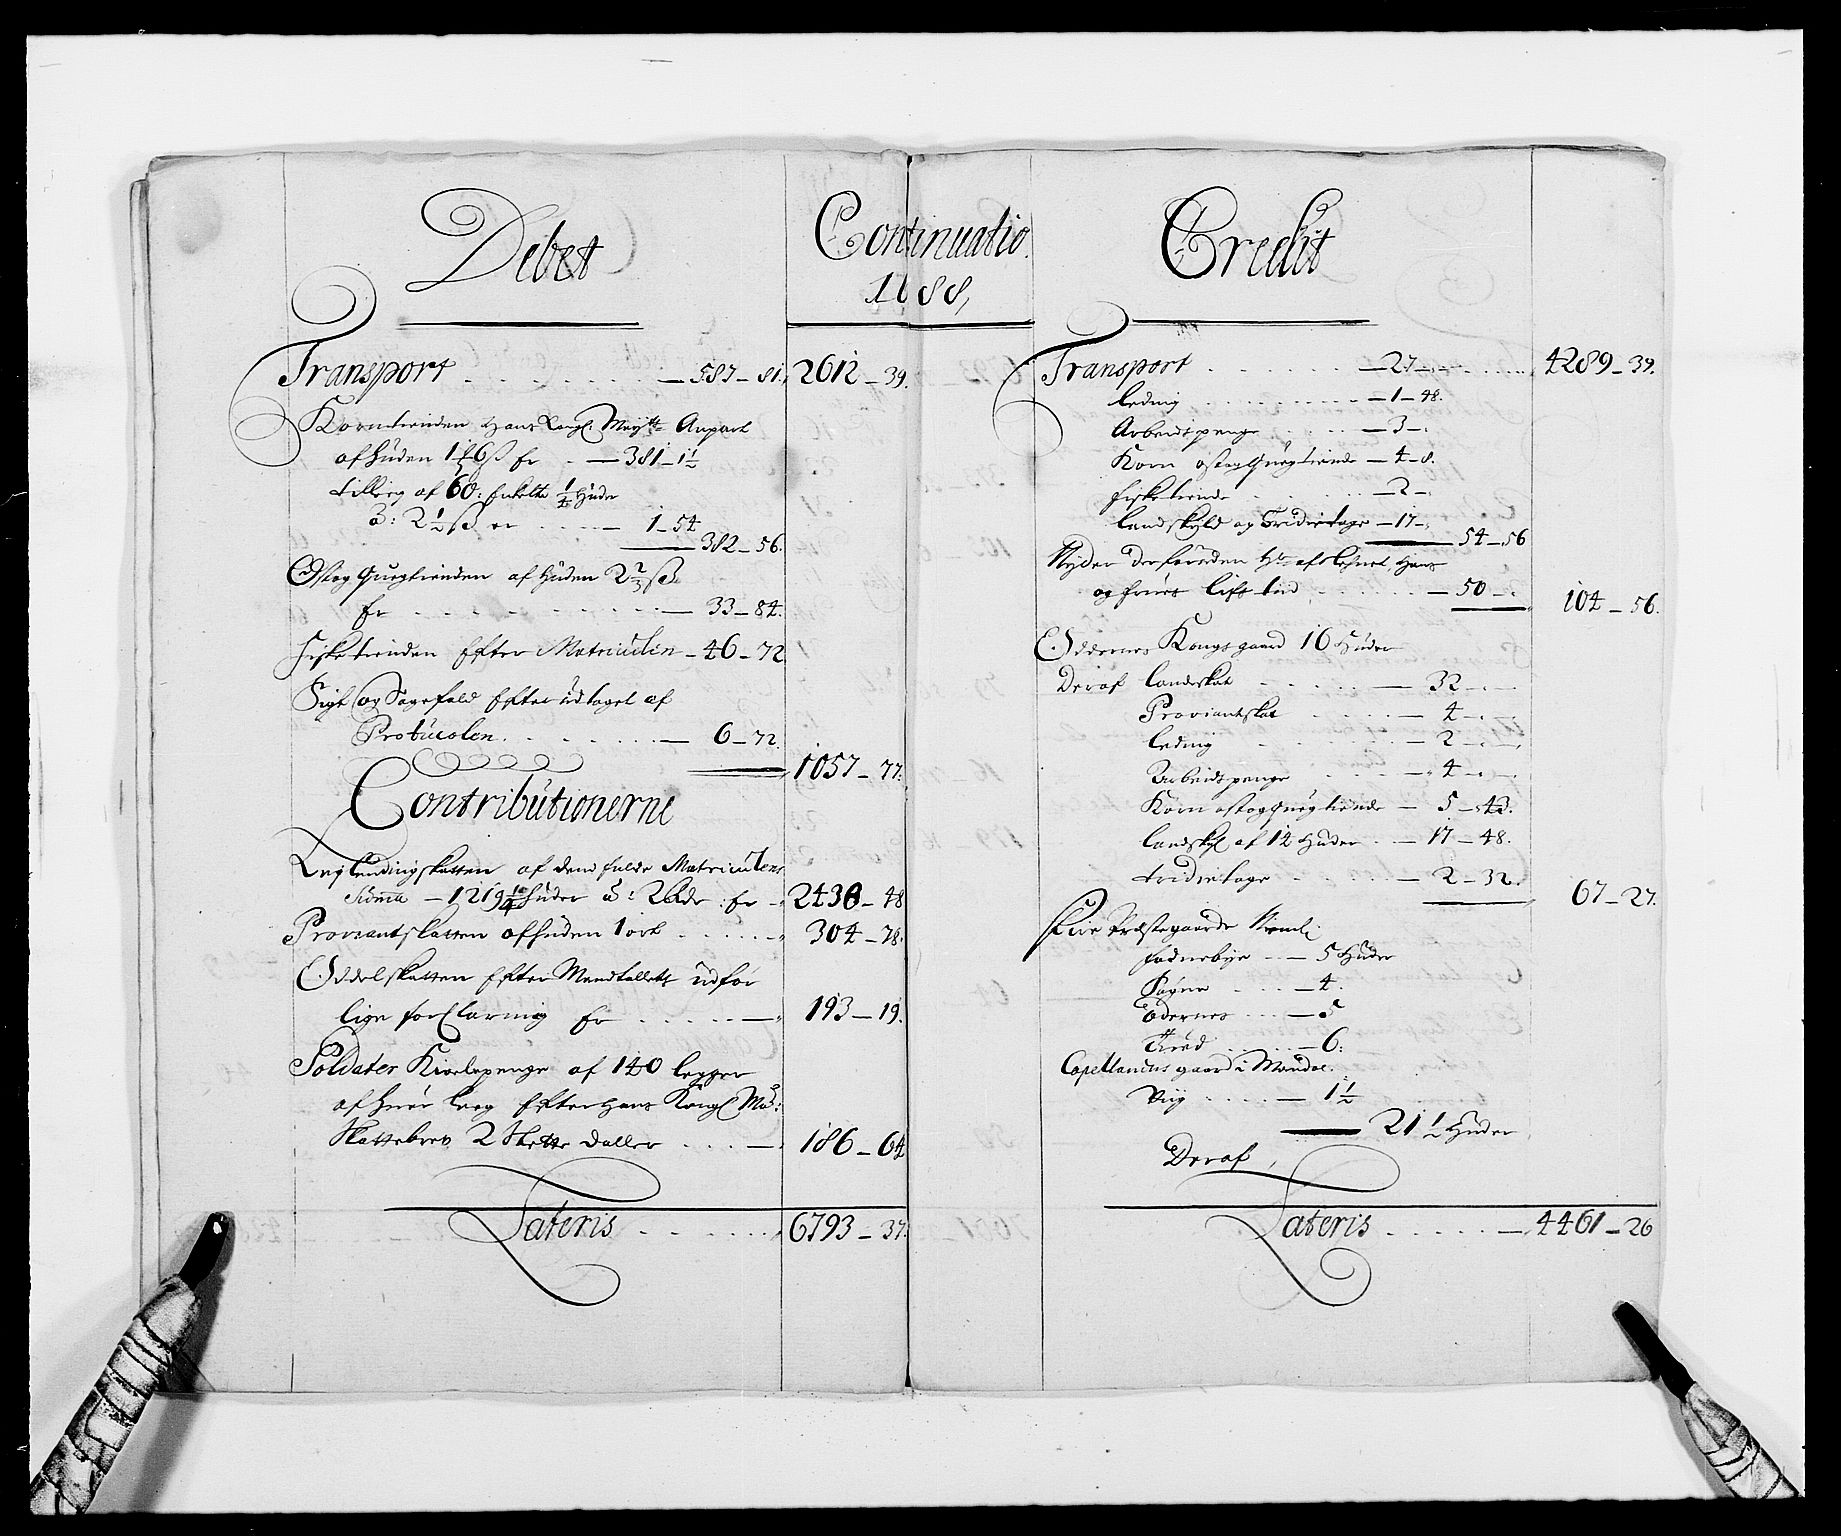 Debet
Transport - 587 - 81. 2612 - 39.
Korntienden Hans Kongl. Mayts Anpart
af Huden er - 381 - 1½
tillæg af 60: Enkelte ¼ Huder
â: 2½ ß er - 1 - 54
382 - 56.
Ost og Quegtienden af Huden 2⅔ ß
Er - 33 - 84.
Fisketienden Efter Matriculen - 46 - 72
Sigt og Sagefald Efter udtaget af
Protucolen - 6 - 72.
1057 - 77.
Contributionerne
Leylendingskatten af dend fulde Matriculens
Suma - 1219 Huder â: 2 Rdr: Er - 2438 - 48
Proviantskatten af huden 1 ort - 304 - 78.
Oddelskatten Efter Mandtallets udfør
lige forClaring Er - 193 - 19.
Soldater Kiolepenge af 140 legger
af huer læg Efter Hans Kongl Ma:
Skattebrev 2 Slette daller - 186 - 64
Lateris - 6793 - 37.
Continuatio.
1688,
Credit
Transport - 27 - 4289 - 39.
leding - 1 - 48.
Arbeidspenge - 3 -
Korn ost og Quegtiende - 4 - 8.
fisketiende - 2 -
landskyld og Tridietage - 17 -
54 - 56
Nyder derforuden af lehnet, Hans
og frues lifs tid - 50 -
104 - 56.
Oddernes Kongsgaard 16 Huder
Deraf landskat - 32 -
Proviantskat - 4 -
leding - 2 -
Arbeidspenge - 4 -
Korn ost og Quegtiende - 5 - 43.
landskyl af 12 Huder - 17 - 48.
tridietage - 2 - 32.
67 - 27.
Præstegaarde Neml:
fadnebye - 5 Huder
Søgne - 4.
Odernes - 5
- 6.
Capellanens gaard i Mandal.
Viig - 1½
21½ Huder
Deraf,
Lateris - 4461 - 26